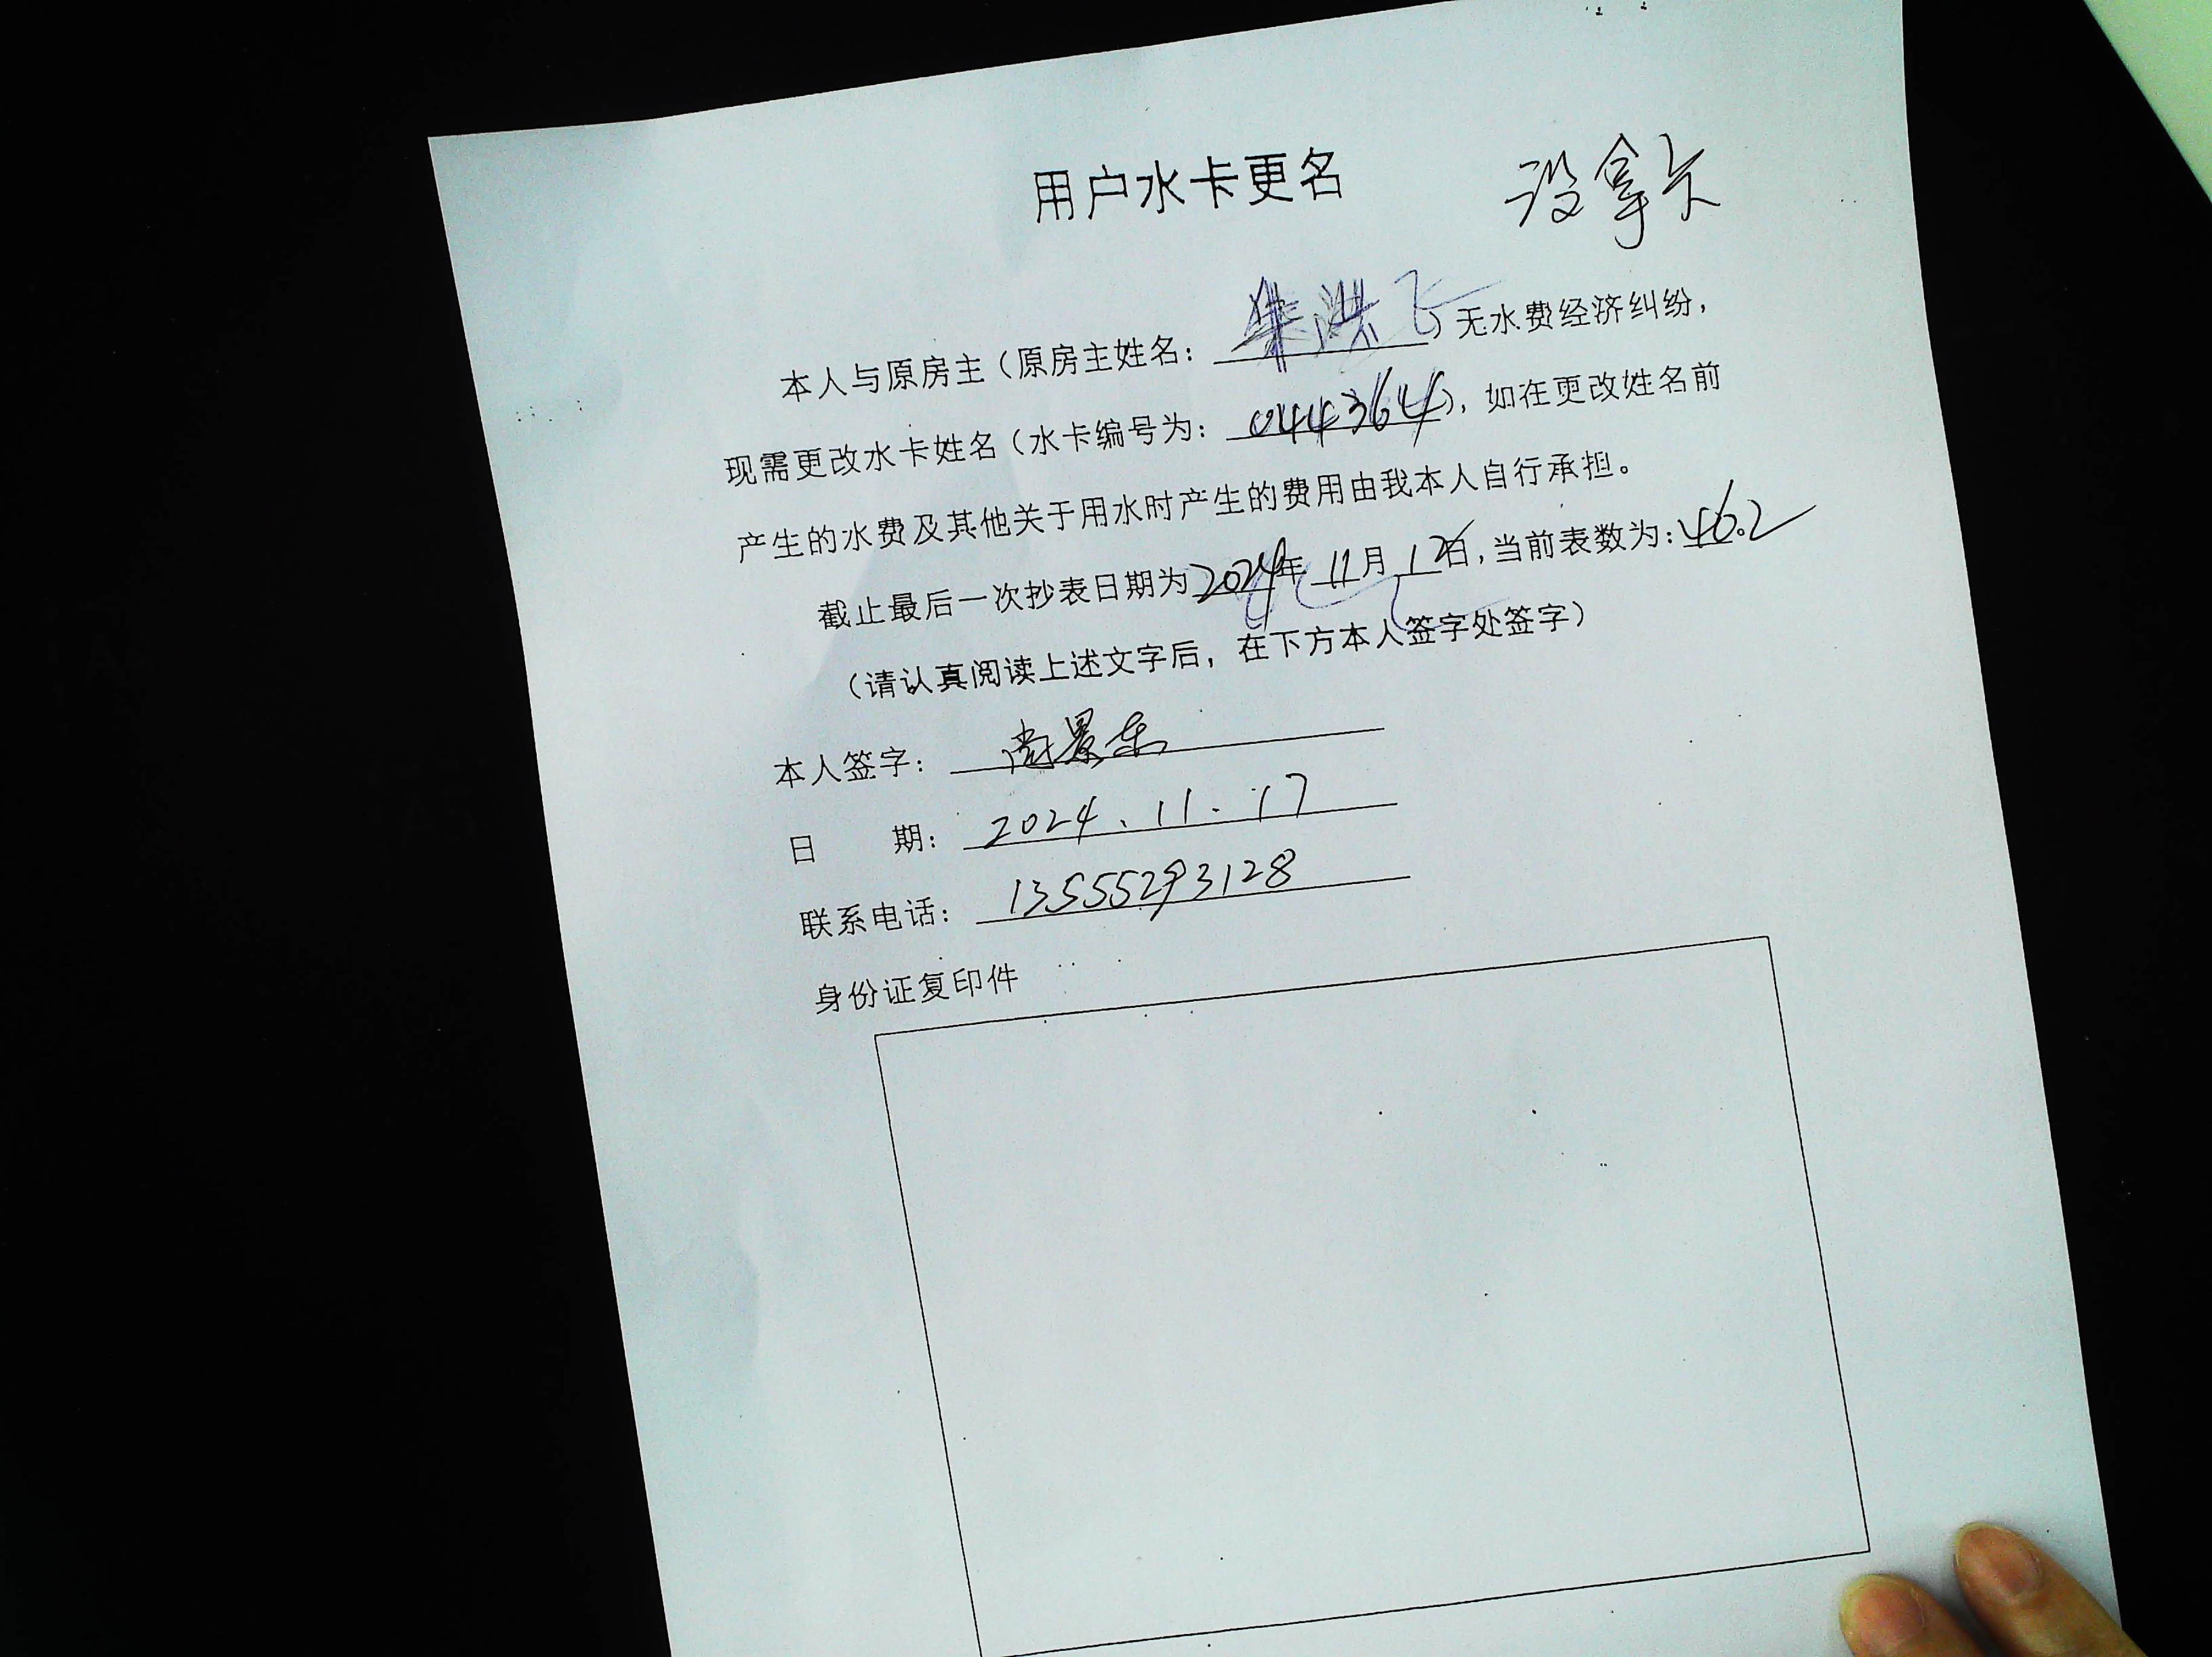 用户水卡更名
没拿卡
本人与原房主（原房主姓名：朱洪飞）无水费经济纠纷，
现需更改水卡姓名（水卡编号为：044364），如在更改姓名前
产生的水费及其他关于用水时产生的费用由我本人自行承担。
截止最后一次抄表日期为2024年11月17日，当前表数为：46.2
（请认真阅读上述文字后，在下方本人签字处签字）
本人签字：尚景东
日 期：2024.11.17
联系电话：13555293128
身份证复印件